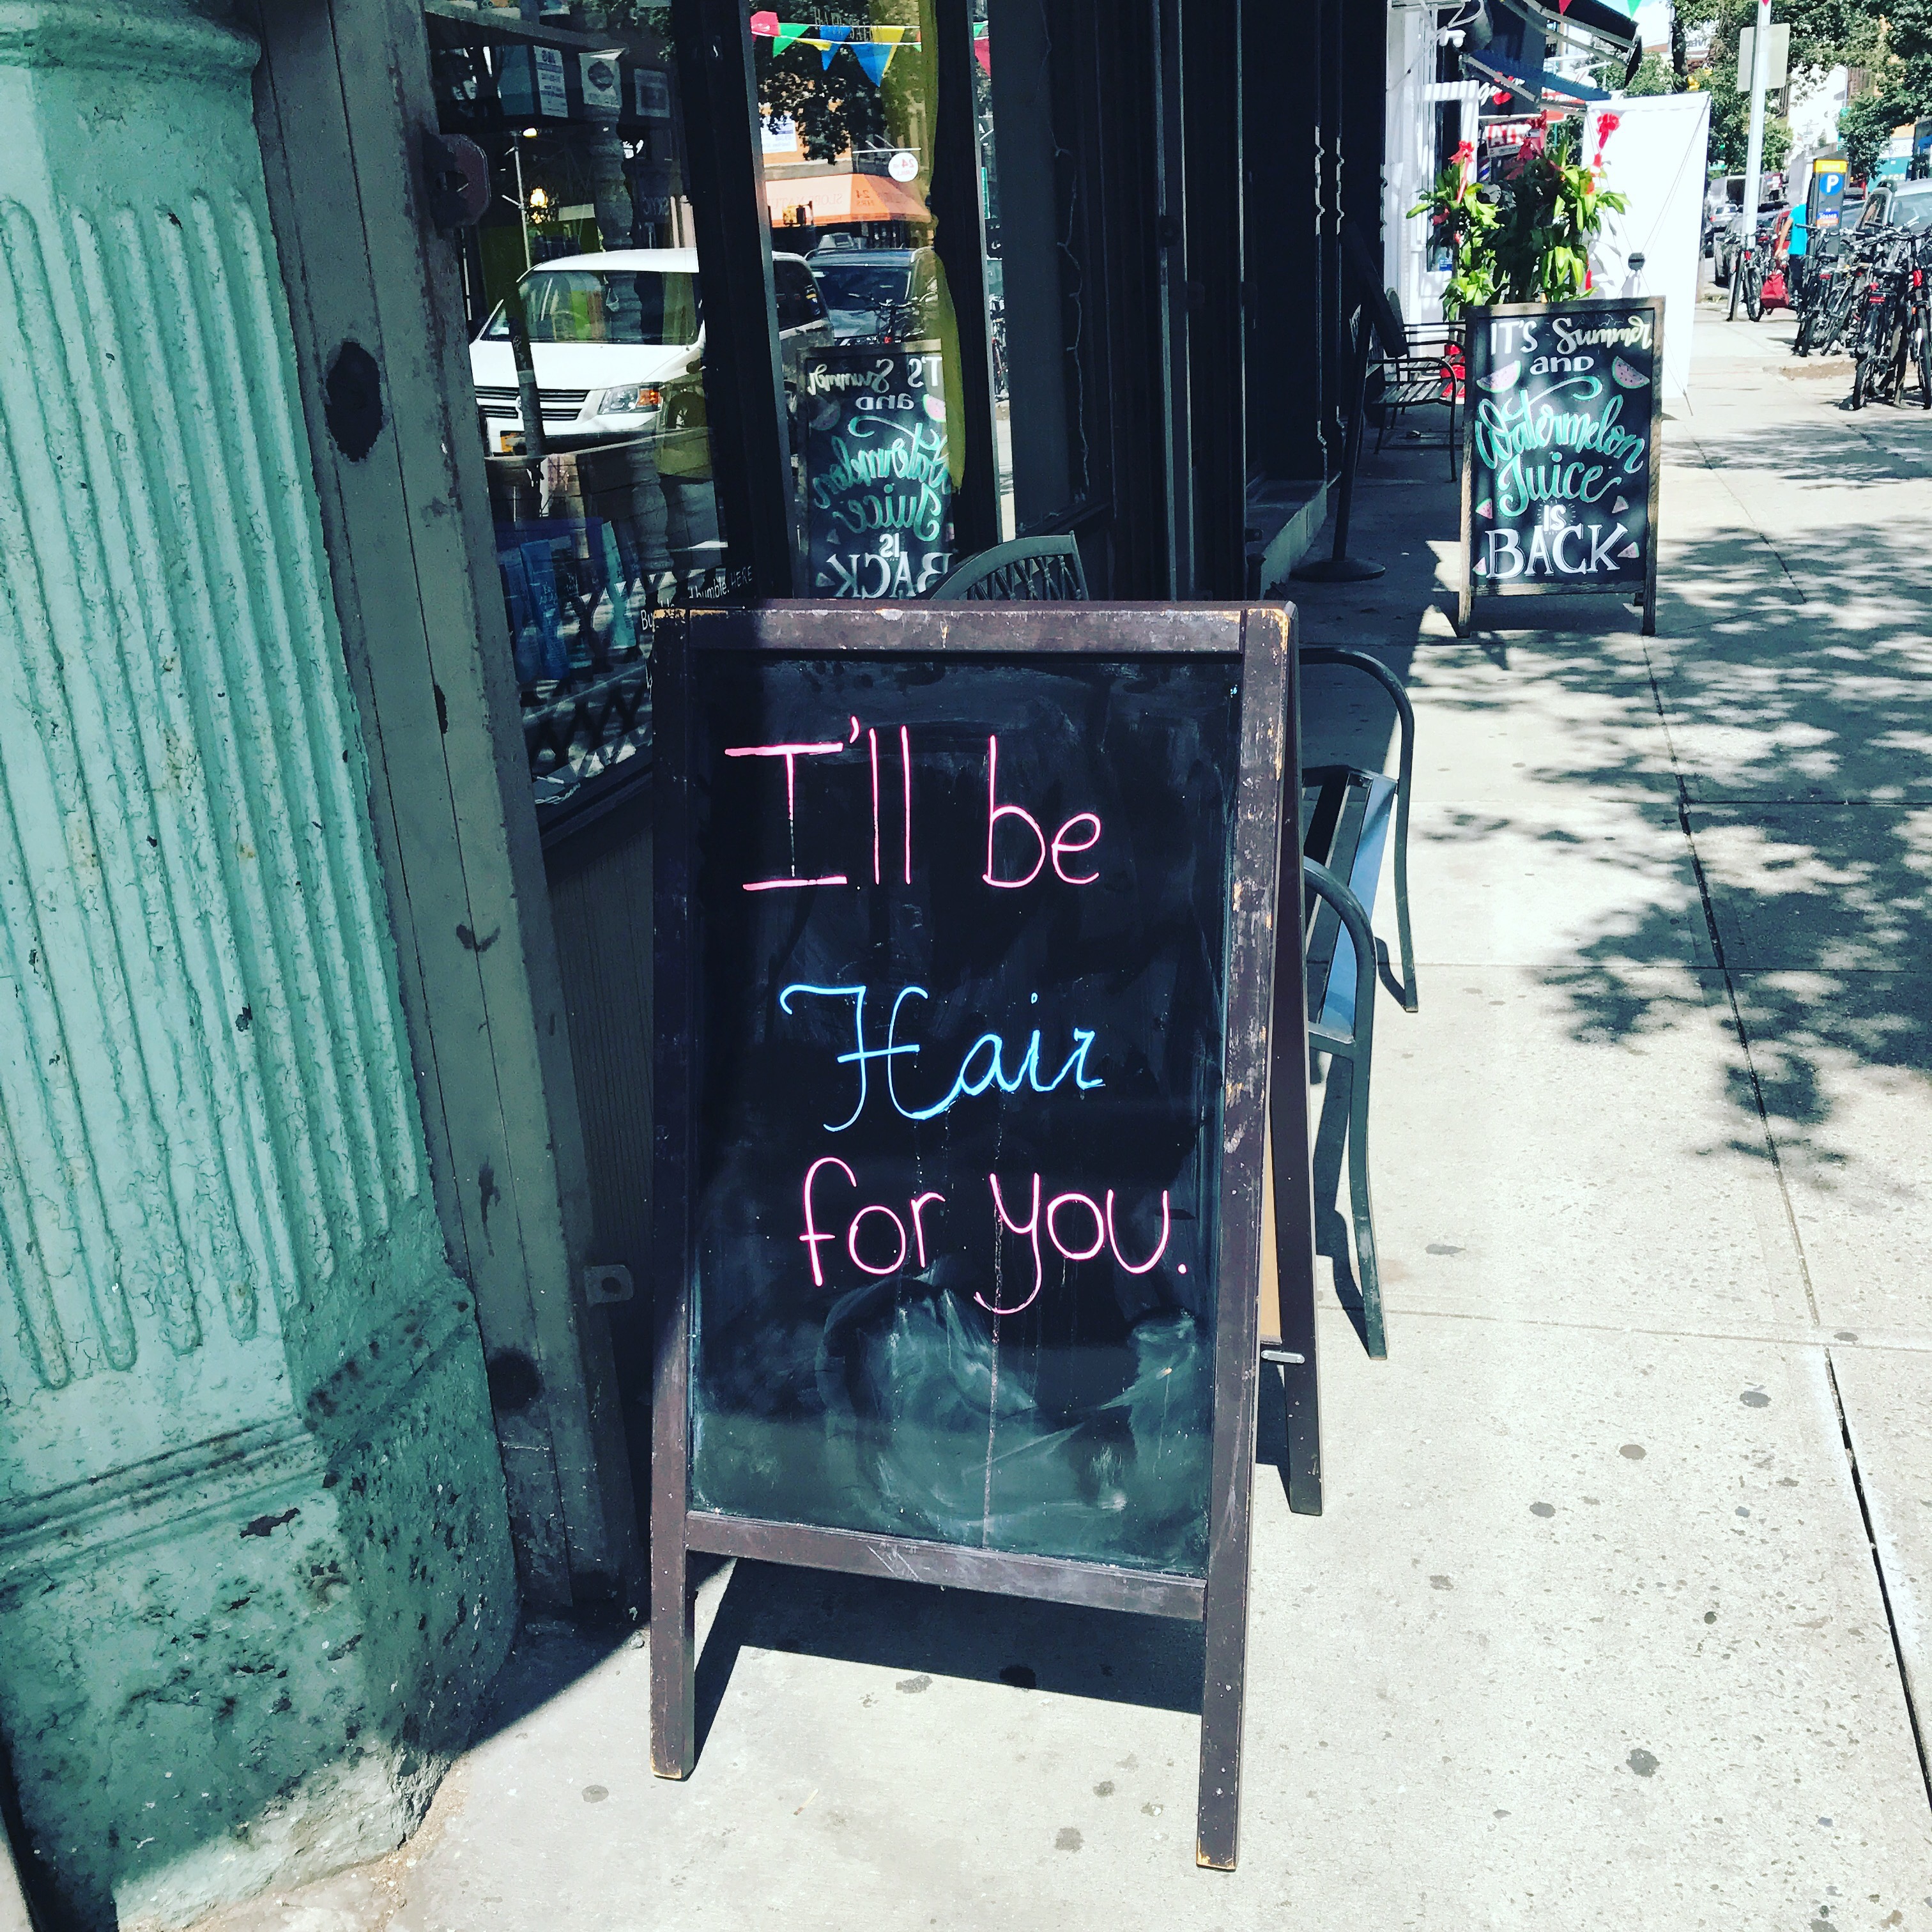 I'll be
Hair
for you.
IT'S Summer
and
Watermelon
Juice
IS
BACK
P